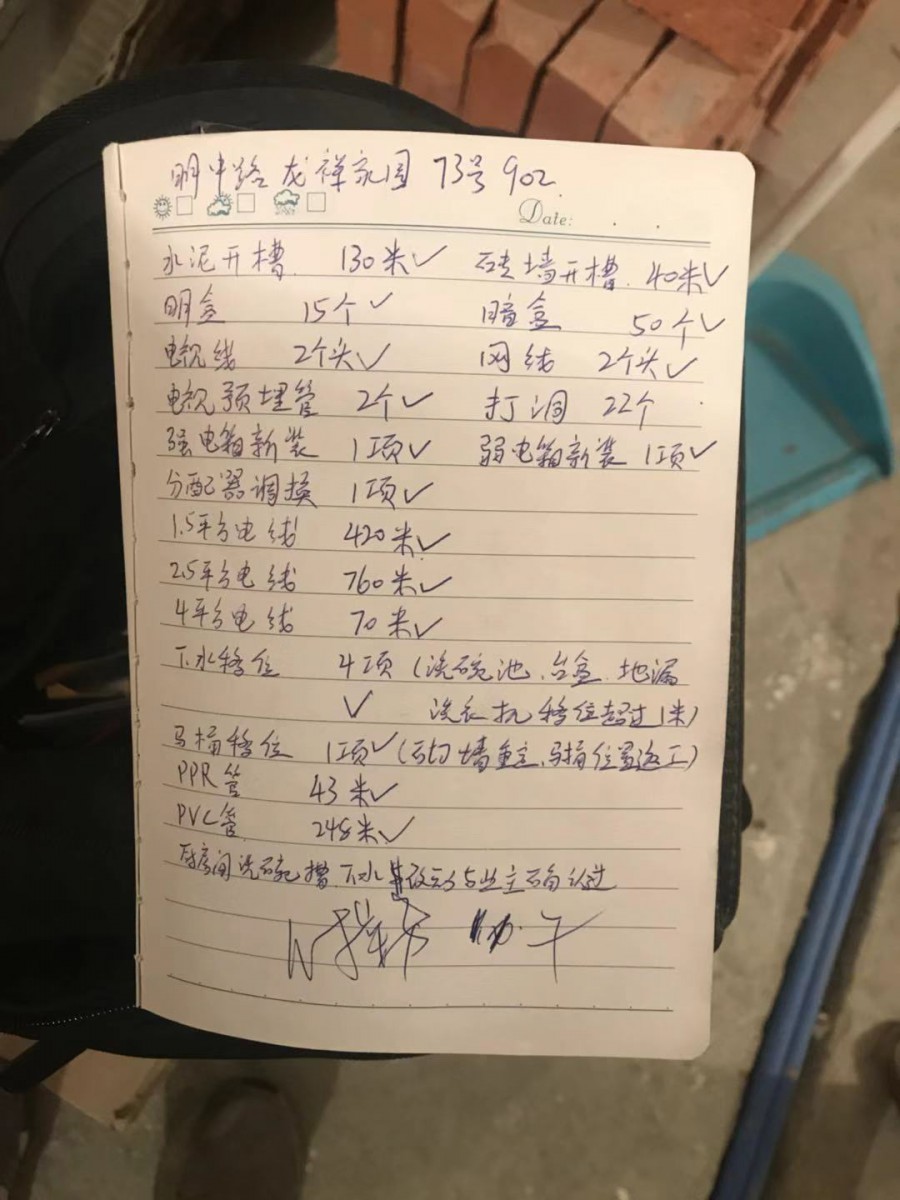 明中路龙祥家园 73号 902
Date:
水泥开槽 130米✓ 砖墙开槽 40米✓
明盒 15个✓ 暗盒 50个✓
电视线 2个头✓ 网线 2个头✓
电视预埋管 2个✓ 打洞 22个
强电箱新装 1项✓ 弱电箱新装 1项✓
分配器调换 1项✓
1.5平方电线 420米✓
2.5平方电线 760米✓
4平方电线 70米✓
下水移位 4项 (洗碗池、台盆、地漏
✓ 洗衣机移位超过1米)
马桶移位 1项✓ (砌墙重立、马桶位置返工)
PPR管 43米✓
PVC管 248米✓
厨房间洗碗槽下水 改动与业主确认过